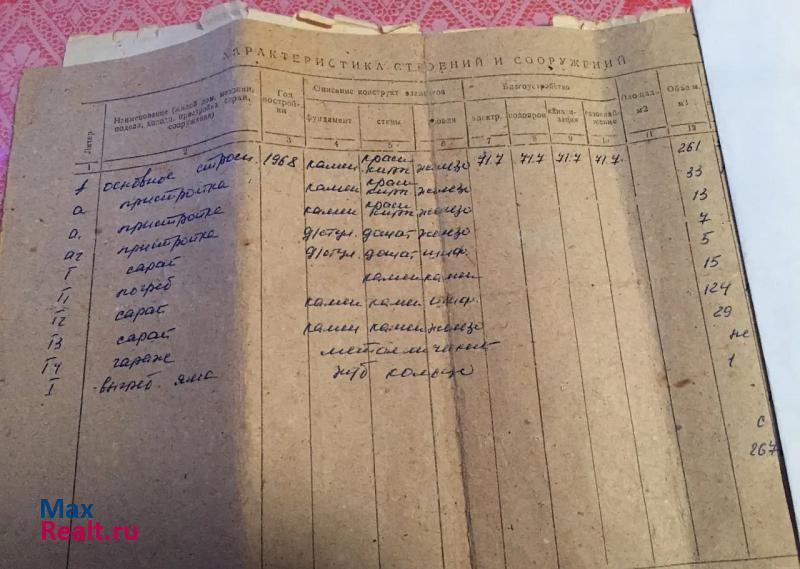 ХАРАКТЕРИСТИКА СТРОЕНИЙ И СООРУЖЕНИЙ
Литер Наименование (жилой дом, мезонин, подвал, холодн. пристройка, сарай, сооружения) Год постройки Описание конструкт элементов Благоустройство Площадь м2 Объем м3
фундамент стены кровля электр. водопров канализация газоснабжение
1 2 3 4 5 6 7 8 9 10 11 12
основное строен. 1968 камен красн кирп железо 71.7 71.7 71.7 71.7 261
а пристройка камен красн кирп железо 33
а1 пристройка камен красн кирп железо 13
а2 пристройка д/стул. дощат железо 7
Г сарай д/стул. дощат шиф. 5
Г1 погреб камен камен 15
Г2 сарай камен камен шиф. 124
Г3 сарай камен камен железо 29
Г4 гараж металлический не
I выгреб. яма ж/б кольцо 1
с
267
Max
Realt.ru